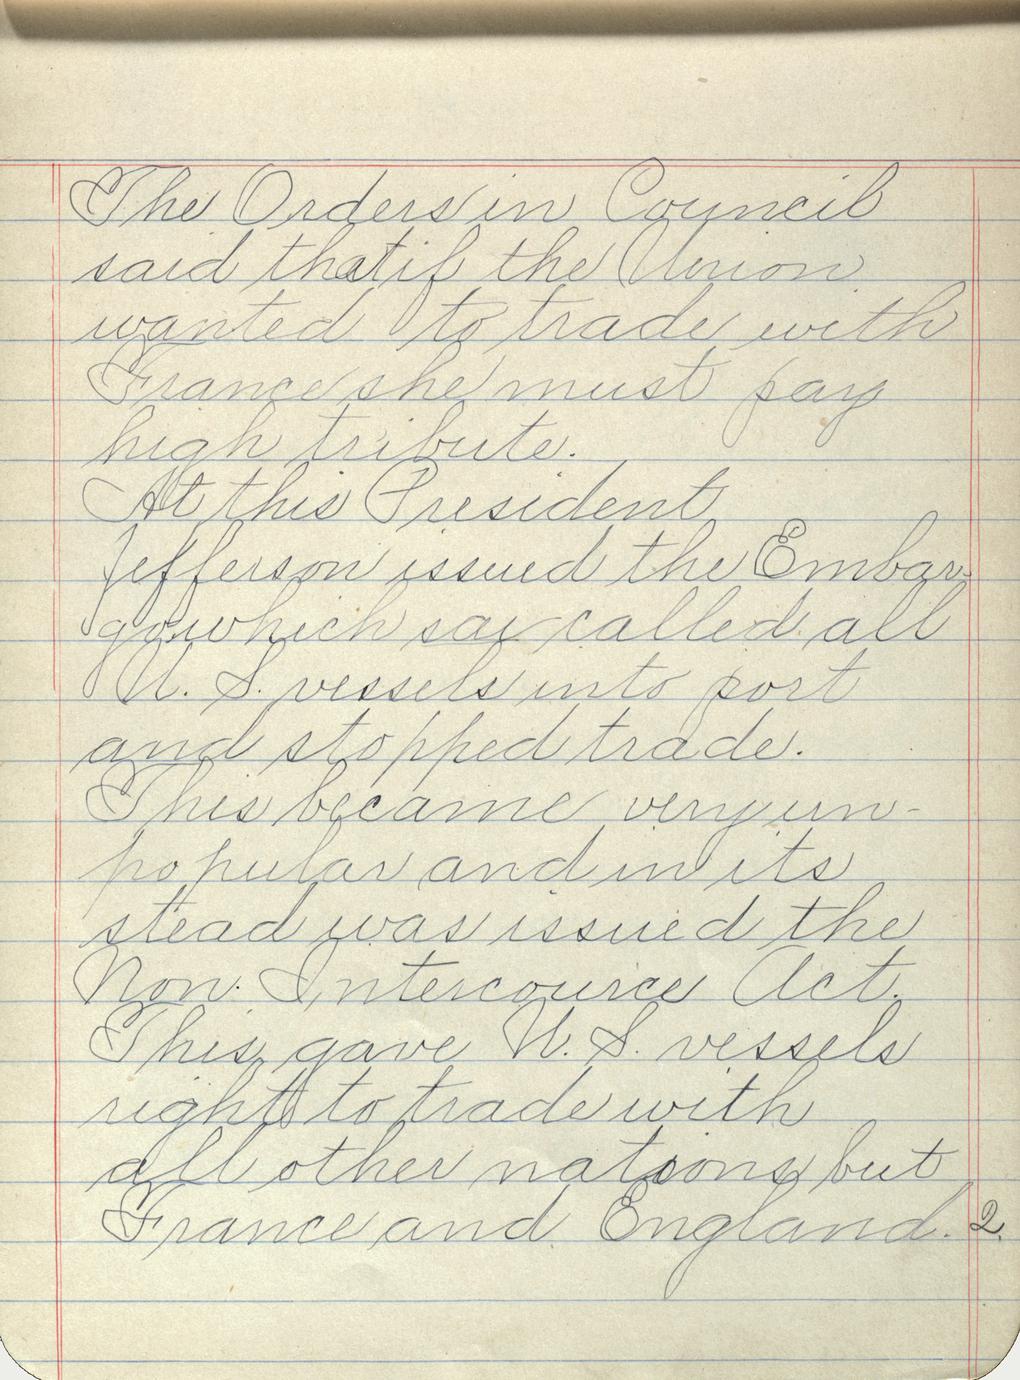 The Orders in Council
said that if the Union
wanted to trade with
France she must pay
high tribute.
At this President
Jefferson issued the Embar-
go which sai called all
U. S. vessels into port
and stopped trade.
This became very un-
popular and in its
stead was issued the
Non. Intercource Act.
This gave U. S. vessels
right to trade with
all other nations but
France and England. 2.